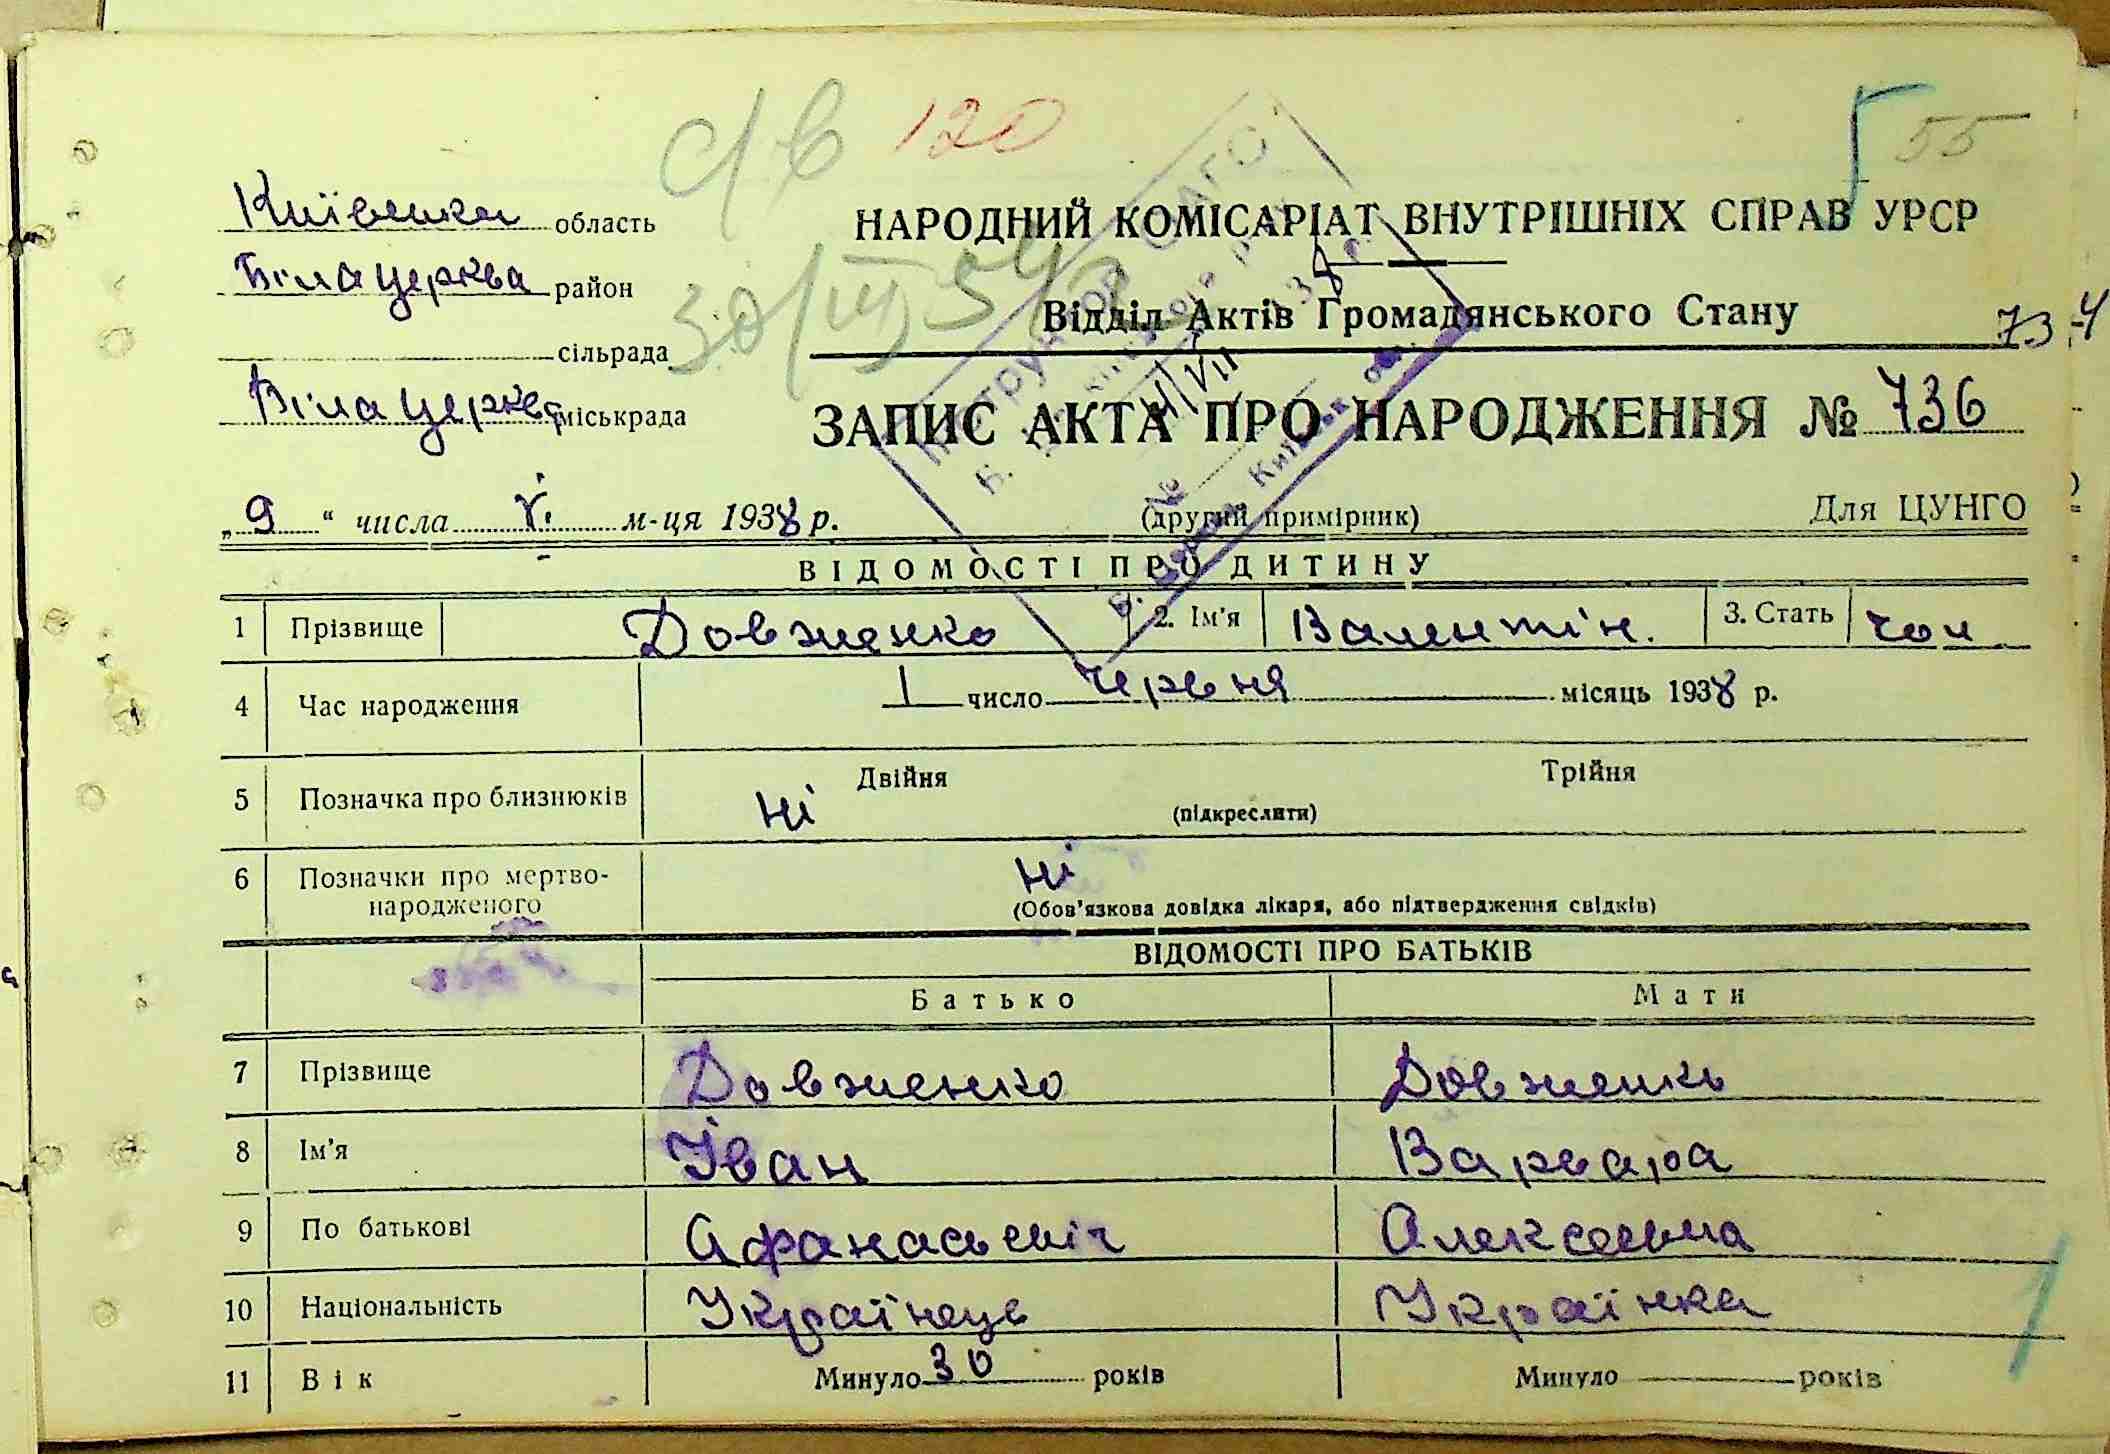 120
55
Київська область
НАРОДНИЙ КОМІСАРІАТ ВНУТРІШНІХ СПРАВ УРСР
Біла церква район
30/III 54
Відділ Актів Громадянського Стану
сільрада
734
Біла церква міськрада
ЗАПИС АКТА ПРО НАРОДЖЕННЯ № 736
„9“ числа VI м-ця 1938 р.
(другий примірник)
Для ЦУНГО
ВІДОМОСТІ ПРО ДИТИНУ
1 Прізвище Довженко 2. Ім'я Валентін. 3. Стать чол
4 Час народження 1 число червня місяць 1938 р.
5 Позначка про близнюків ні Двійня Трійня
(підкреслити)
6 Позначки про мертво-
народженого ні
(Обов'язкова довідка лікаря, або підтвердження свідків)
ВІДОМОСТІ ПРО БАТЬКІВ
Батько Мати
7 Прізвище Довженко Довженко
8 Ім'я Іван Варвара
9 По батькові Афанасьевіч Алексеевна
10 Національність Українець Українка
11 Вік Минуло 30 років Минуло років